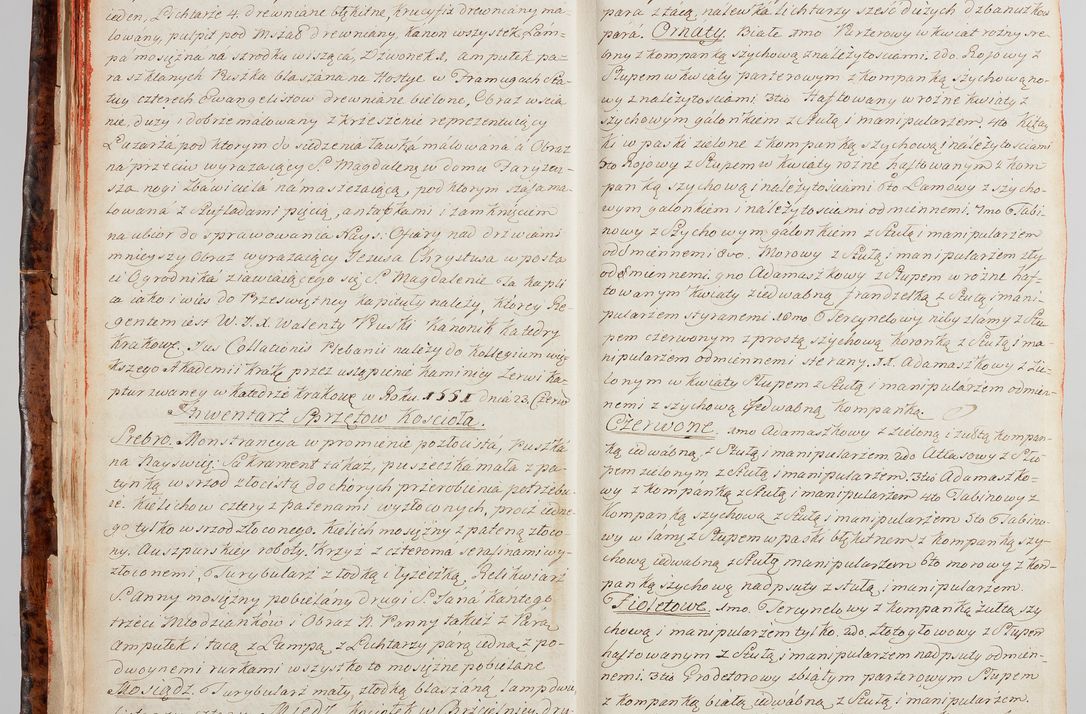 ieden, Lichtarze 4. drewniane błękitne, Krucyfix drewniany ma-
lowany, pulpit pod Mszał drewniany, kanon wszystek Lam-
pa mosiężna na srzodku wisząca, Dzwonek 1, ampułek pa-
ra szklanych Puszka blaszana na Hostye w Framugach sta-
tuy czterech Ewangelistow drewniane bielone, Obraz w scia-
nie, duży i dobrze malowany z krzeszenie reprezentuiący
Łazarza, pod ktorym do siedzenia ławka malowana a Obraz
na przeciw wyrażaiący S. Magdalenę w domu Faryzeu-
sza nogi zbawiciela namaszczaiącą, pod ktorym szafa ma-
lowana z szufladami pięcią, antabkami i zamknięciem
na ubior do sprawowania Nays: Ofiary nad drzwiami
mnieyszy Obraz wyrażaiący Jezusa Chrystusa w posta-
ci Ogrodnika ziawiaiącego się S. Magdalenie Ta kapli-
ca iako i wies do Przeświętney kapituły należy, ktorey Re-
gentem iest W. J. X. Walenty Pruski Kanonik katedry
krakows: Jus Collationis Plebanii należy do Kollegium wię-
kszego Akademii krak: przez ustąpienie kamienicy Zerwi ka-
ptur zwaney w katedrze krakows: w Roku 1551 dnia 23. Czerw:
Inwentarz Sprzętow Kościoła.
Srebro. Monstrancya w promienie pozłocista, Puszka
na Nayswię: Sakrament takaż, puszeczka mała z pa-
tynką w srzod złocistą do chorych przerobienia potrzebu-
ie. Kielichow cztery z patenami wyzłoconych, procz iedne-
go tylko w srzod złoconego. Kielich mosiężny z pateną złoco-
ny. Auszpurskiey roboty. Krzyż z czterema serafinami wy-
złoconemi, Turybularz z łodką i łyżeczką, Relikwiarz
S. Anny mosiężny pobielany drugi S. Jana Kantego
trzeci Młodzianków i Obraz N. Panny także z Parą
ampułek i tacą z Lampą z Lichtarzy parą iedną z po-
dwoynemi rurkami wszystko to mosiężne pobielane
Mosiądz. Turybularz mały, złodką blaszaną, lamp dwie,
para z tacą, nalewka Lichtarzy sześć dużych dzbanuszkow
para. Ornaty. Białe 1mo Parterowy w kwiat rożny sre-
brny z kompanką szychową z należytościami. 2do. Rożowy z
słupem w kwiaty parterowym z kompanką szychową no-
wy z należytościami 3tio Haftowany w rożne kwiaty z
szychowym galonkiem z stułą i manipularzem. 4to Kitay-
ki w paski zielone z kompanką szychową i należytościami
5to Rożowy z słupem w kwiaty rożne haftowanym z kom-
panką szychową i należytościami 6to Damowy z szycho-
wym galonkiem i należytościami odmiennemi. 7mo Tabi-
nowy z szychowym galonkiem z stułą i manipularzem
odmiennemi 8vo. Morowy z stułą i manipularzem zły
odmiennemi. 9no Adamaszkowy z słupem w rożne haf-
towanym kwiaty z iedwabną frandzelką z stułą i mani-
pularzem styranemi 10mo Tercynelowy niby zlamy z słu-
pem czerwonym z prostą szychową koronką z stułą i ma-
nipularzem odmiennemi sterany. 11. Adamaszkowy z zie-
lonym w kwiaty słupem z stułą i manipularzem odmien-
nemi z szychową iedwabną kompanką.
Czerwone. 1mo Adamaszkowy z zieloną i żułtą kompan-
ką iedwabną, z stułą i manipularzem. 2do Atlasowy z słu-
pem zielonym z stułą i manipularzem. 3tio Adamaszko-
wy z kompanką z stułą i manipularzem 4to Tabinowy z
kompanką szychową z stułą i manipularzem 5to Tabino-
wy w łamę z słupem w paski błękitnem z kompanką szy-
chową iedwabną z stułą i manipularzem 6to morowy z kom-
panką szychową nadpsuty z stułą i manipularzem.
Fioletowe. 1mo. Tercynelowy z kompanką żułtą szy-
chową i manipularzem tylko. 2do. złotogłowowy z słupem
haftowanym z stułą i manipularzem nadpsuty odmien-
nemi. 3tio Grodetorowy z białym parterowym słupem
z kompanką białą iedwabną z stułą i manipularzem.